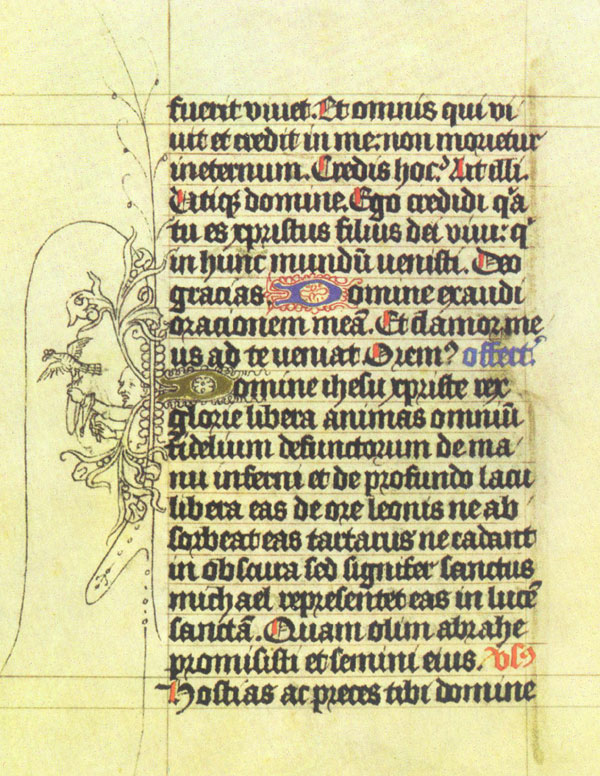 fuerit viuet. Et omnis qui vi
uit et credit in me: non morietur
ineternum. Credis hoc? Ait illi.
Utiq3 domine. Ego credidi qͥa
tu es xpristus filius dei viui: qͥ
in hunc mundū uenisti. Deo
gracias. Domine exaudi
orationem meā. Et clamor me
us ad te ueniat Orem⁹ offert'.
Domine ihesu xpriste rex
glorie libera animas omniū
fidelium defunctorum de ma
nu inferni et de profundo lacu
libera eas de ore leonis ne ab
sorbeat eas tartarus ne cadant
in obscura sed signifer sanctus
michael representet eas in lucē
sanctā. Quam olim abrahe
promisisti et semini eius. v̄s⁹
Hostias ac preces tibi domine